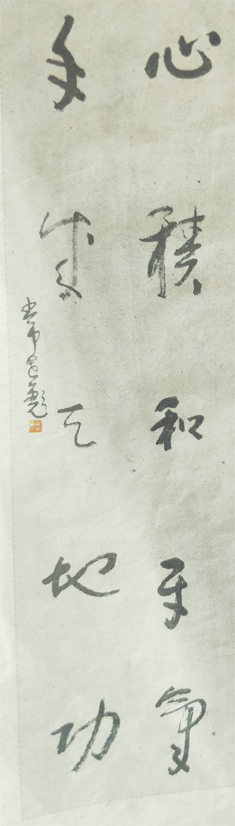 心積和平氣
手成天地功